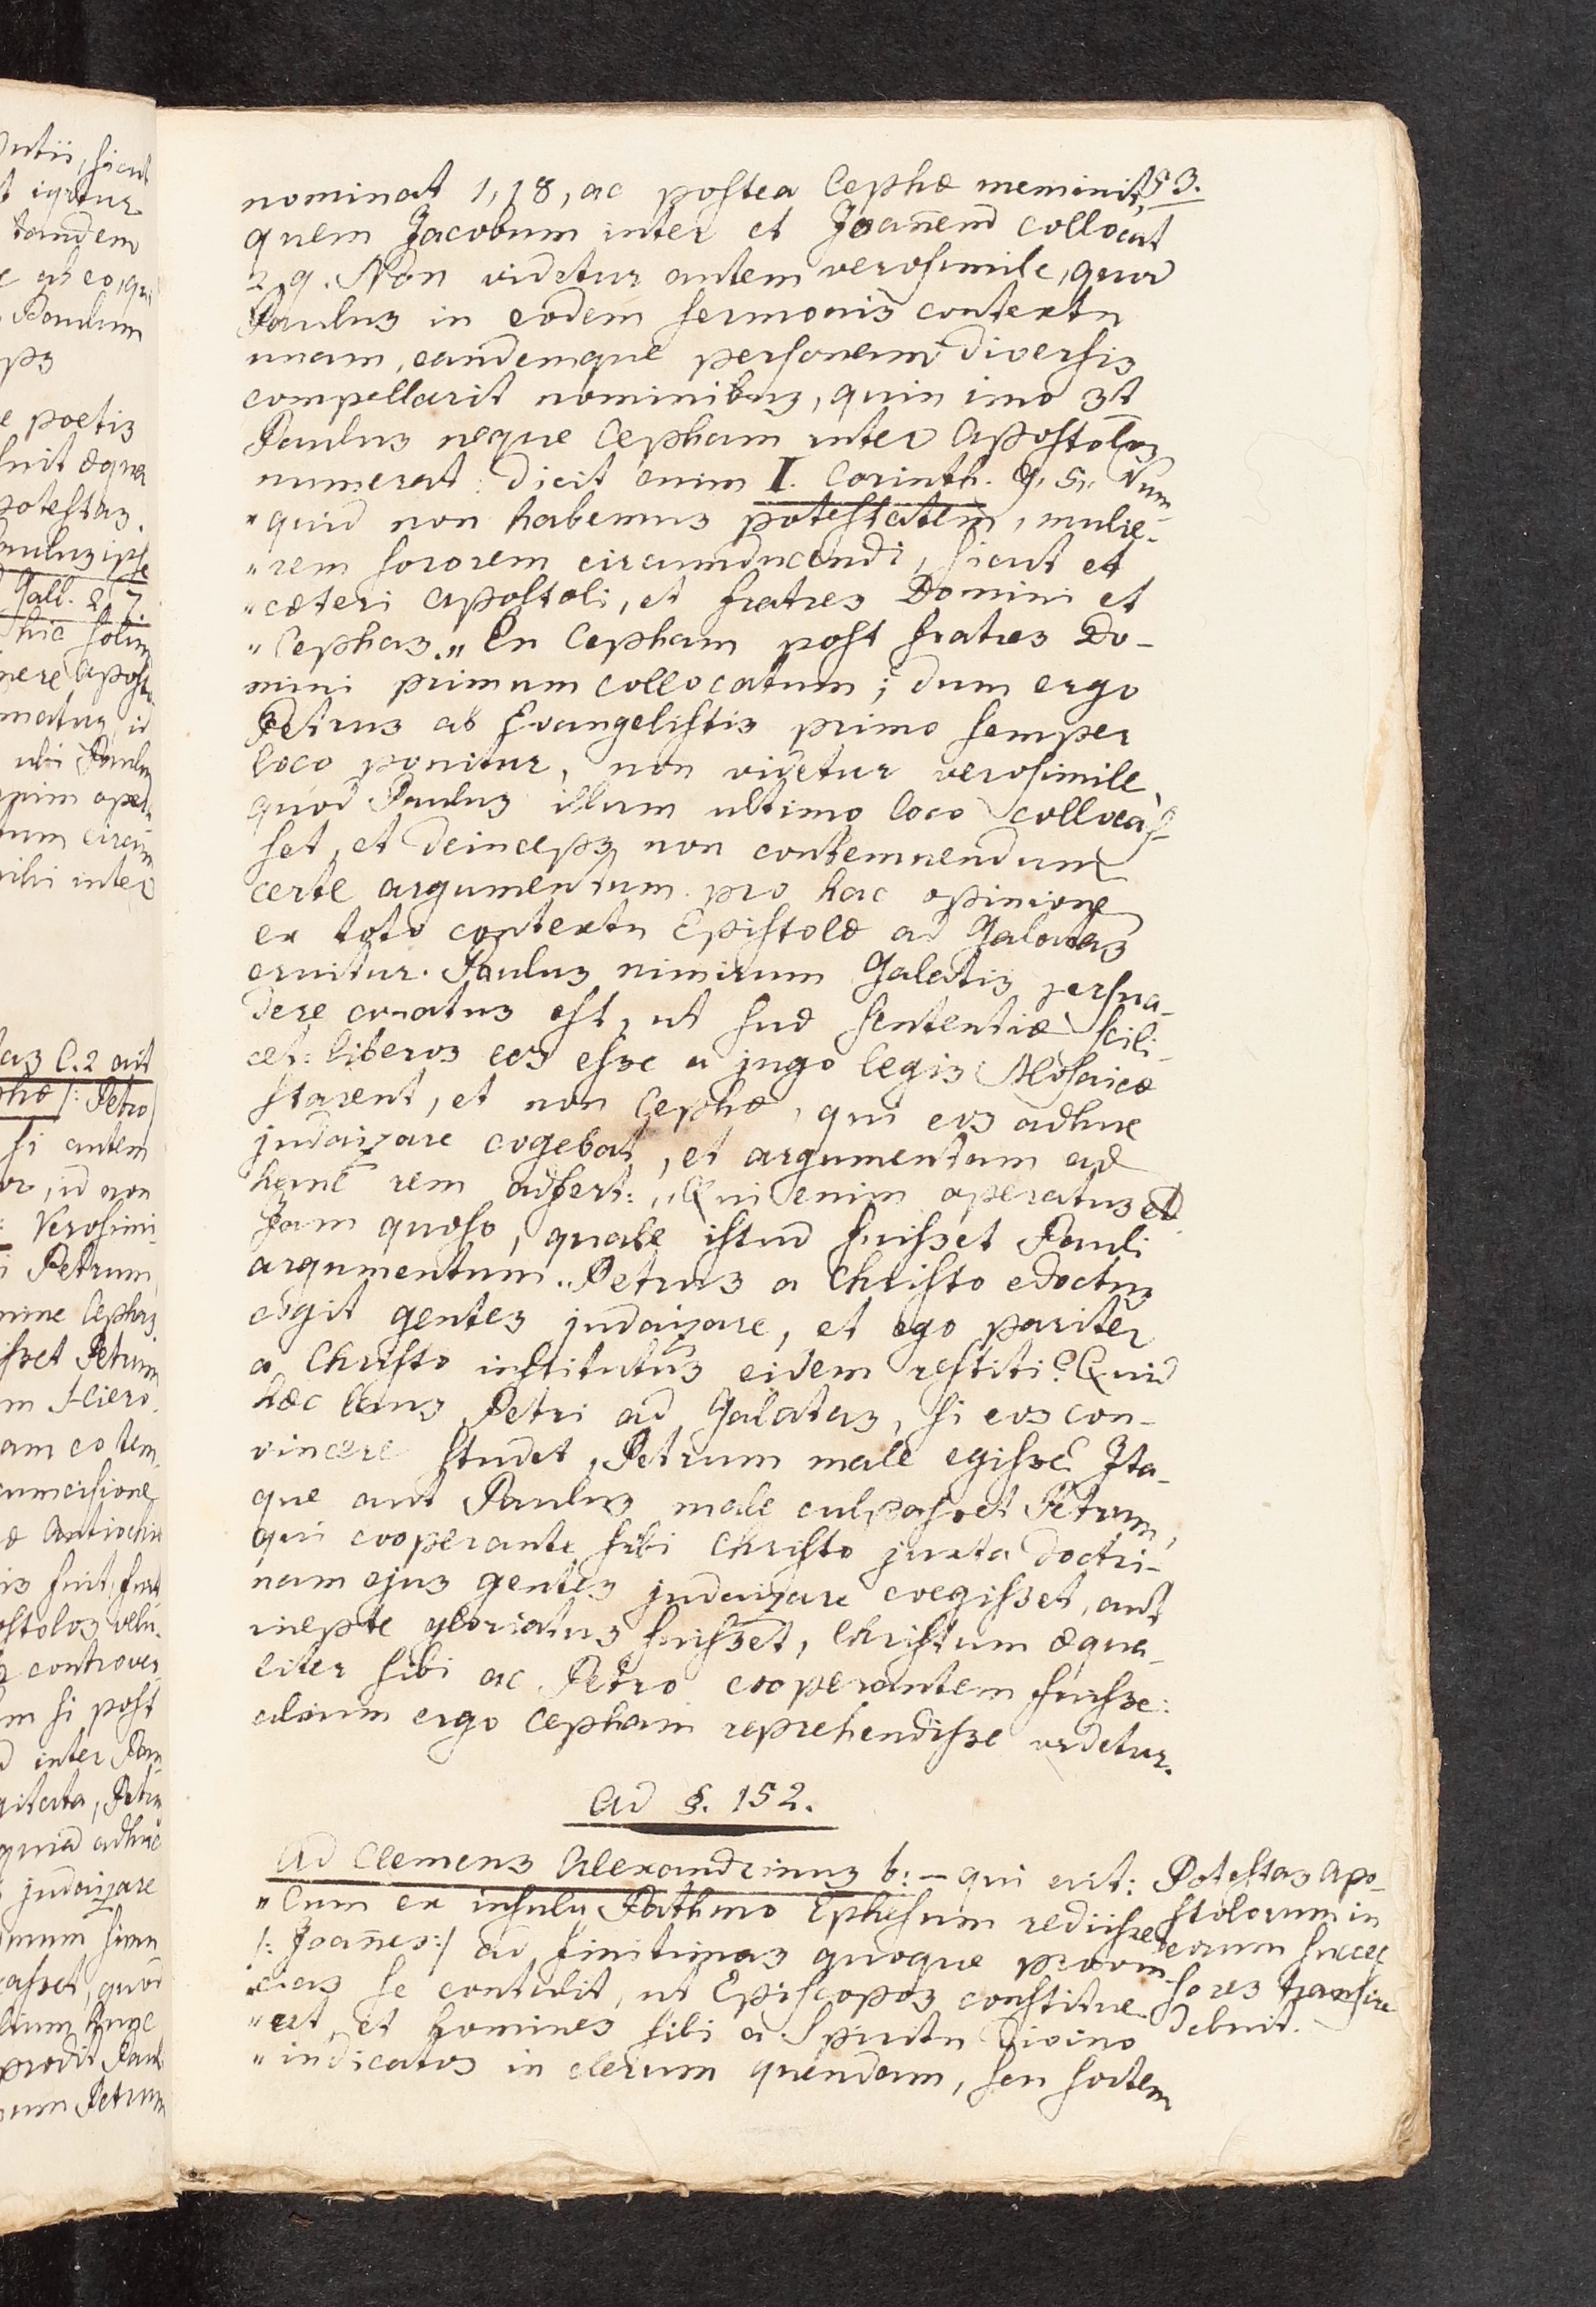 53.
nominat 1, 18, ac postea Cephæ meminit,
quem Jacobum inter et Joañem collocat
2, 9. Non videtur autem verosimile, quod
Paulus in eodem sermonis contextu
unam, eandemque personam diversis
compellarit nominibus, quin imo st
Paulus neque Cepham inter Apostolos
numerat: dicit enim I. Corinth. 9, 5, Num-
"quid non habemus potestatem, mulie-
"rem sororem circumducendi, sicut et
"cæteri Apostoli, et fratres Domini et
"Cephas." En Cepham post fratres Do-
mini primum collocatum; dum ergo
Petrus ab Evangelistis primo semper
loco ponitur, non videtur verosimile,
quod Paulus illum ultimo loco collocas-
set, et deinceps non contemnendum
certe argumentum pro hac opinione
ex toto contextu Epistolæ ad Galatas
eruitur. Paulus nimirum Galatis persua-
dere conatus est, ut suæ sententiæ scili-
cet: liberos eos esse a jugo legis Mosaicæ
starent, et non Cephæ, qui eos adhuc
judaizare cogebat, et argumentum ad
hanc rem adfert: "Qui enim operatus et
Jam quæso, quale istud fuisset Pauli
argumentum. "Petrus a Christo edoctus
cogit gentes judaizare, et ego pariter
a Christo institutus eidem restiti? Quid
hæc laus Petri ad Galatas, si eos con-
vincere studet, Petrum male egisse? Ita-
que aut Paulus male culpasset Petrum,
qui cooperante sibi Christo juxta doctri-
nam ejus gentes judaizare coegisset, aut
inepte gloriatus fuisset, Christum æqua-
liter sibi ac Petro cooperantem fuisse:
alium ergo Cepham reprehendisse videtur.
Ad §. 152.
Ad Clemens Alexandrinus b: – qui ait:
"Cum ex insula Pathmo Ephesum rediisse
/: Joañes:/ ad finitimas quoque provin
"cias se contulit, ut Episcopos constitue
"ret et homines sibi a Spiritu Divino
"indicatos in clerum quendam, seu sortem
Potestas Apo-
stolorum in
eorum succes
sores transire
debuit.